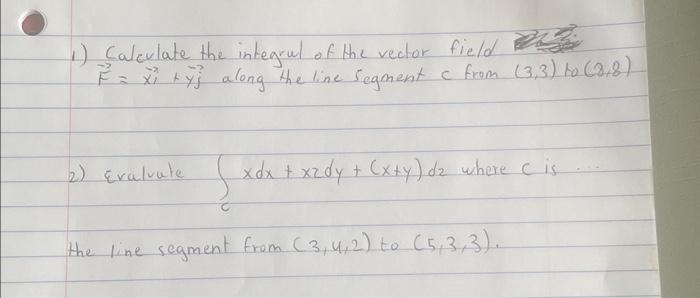 1) Calculate the integral of the vector field
F⃗ = xi⃗ + yj⃗ along the line segment c from (3,3) to (8,8)
2) Evaluate ∫_c xdx + xzdy + (x+y)dz where c is ...
the line segment from (3,4,2) to (5,3,3).